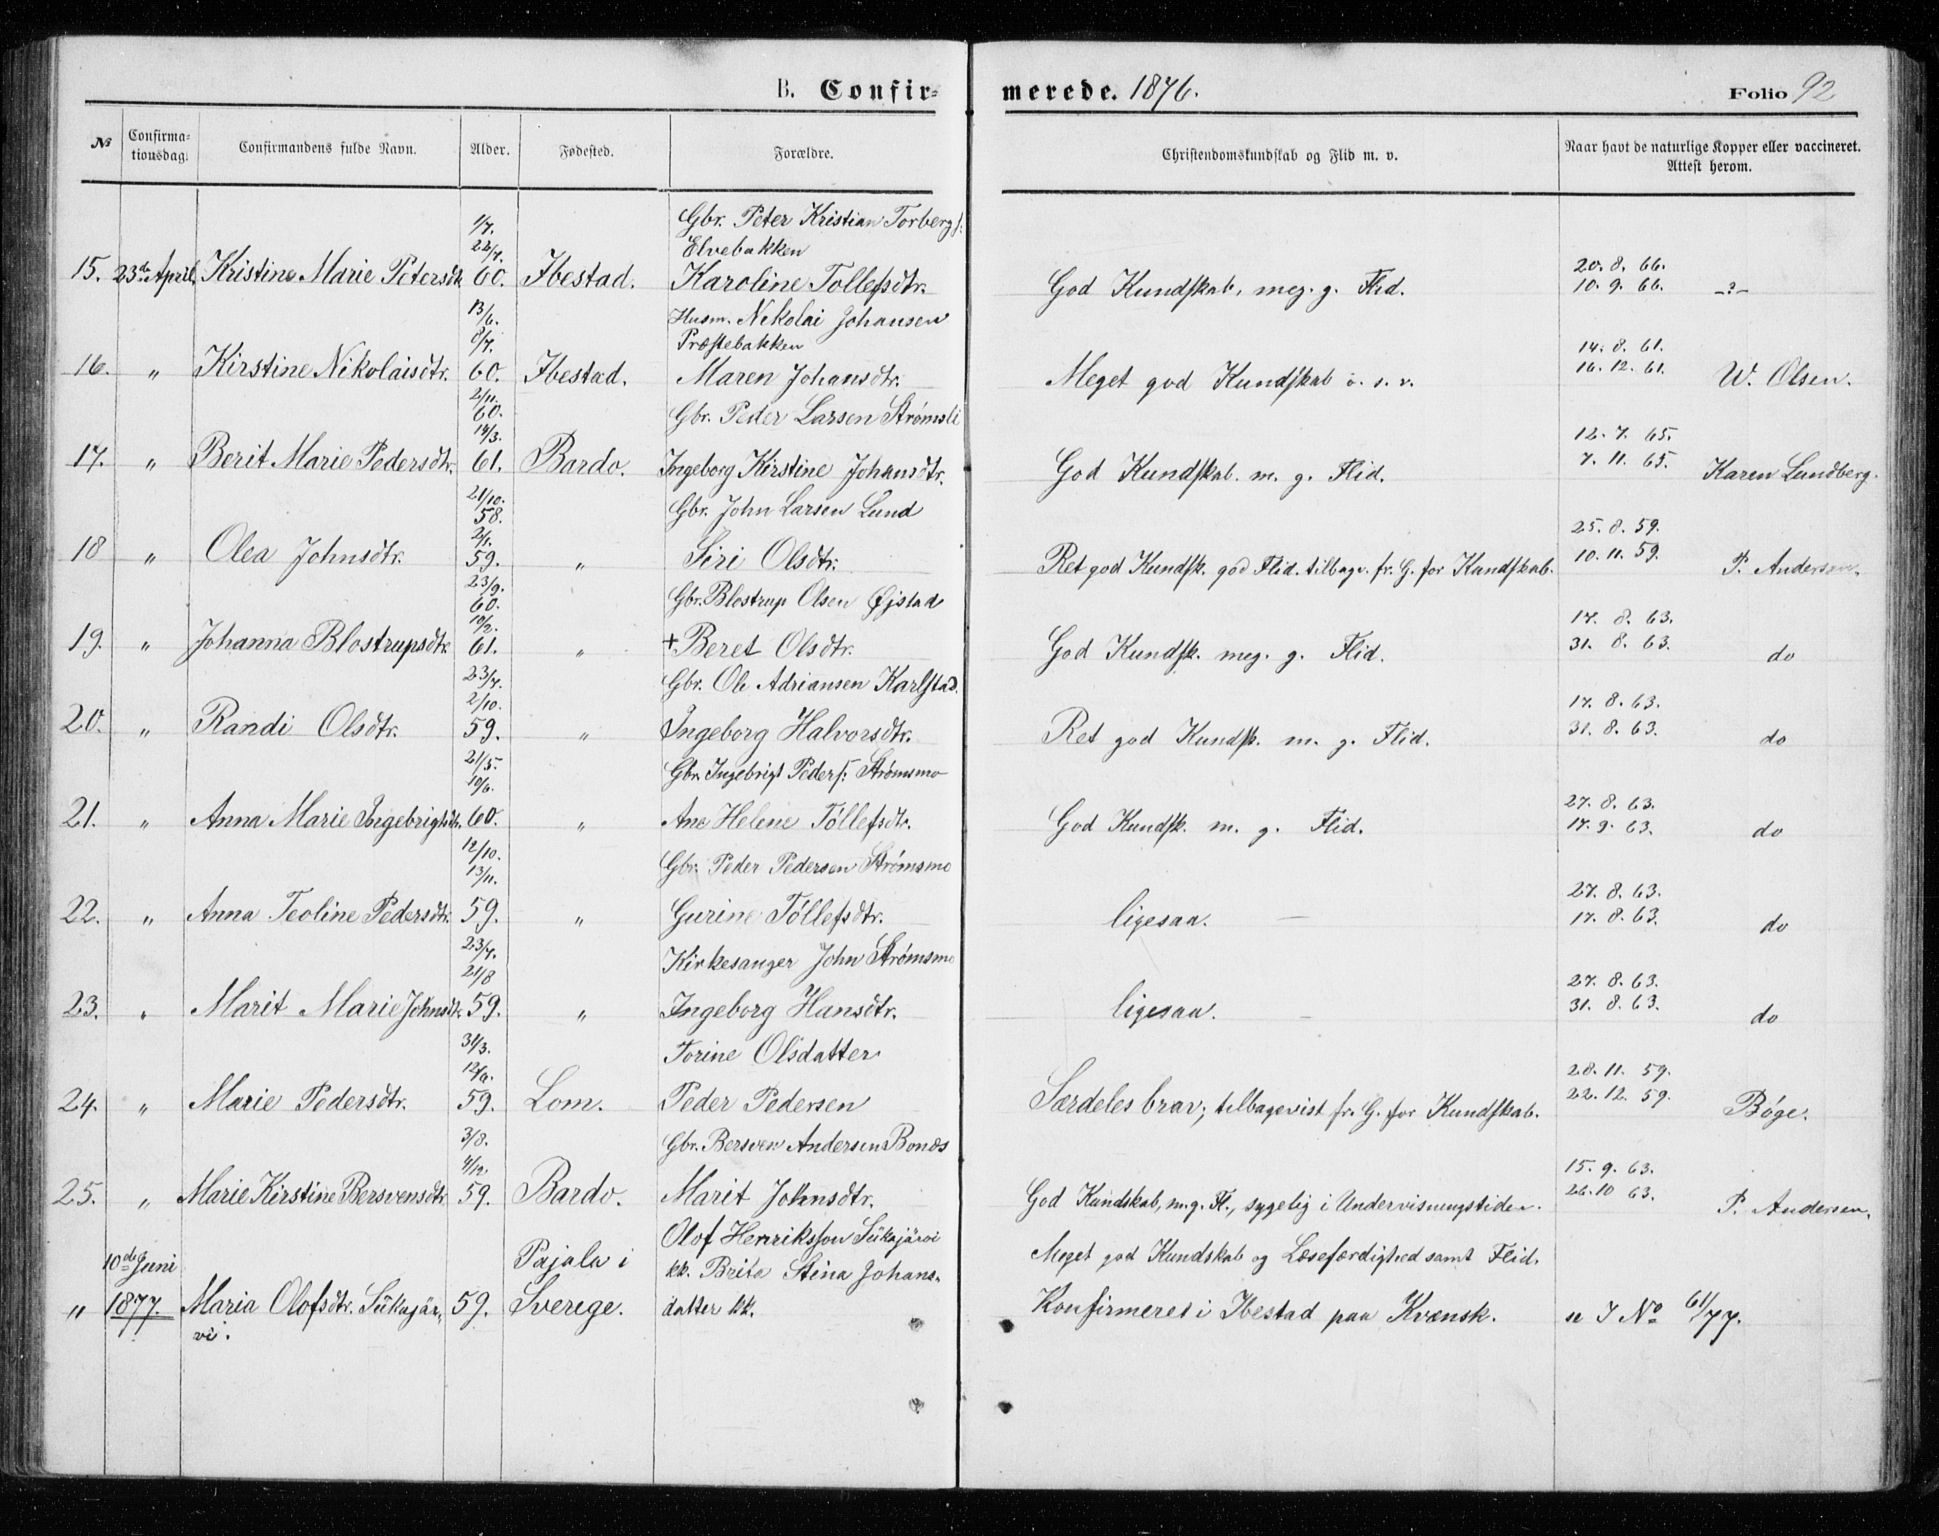 B. Confirmerede. 1876. Folio 92
No Confirmationsdag. Confirmandens fulde Navn. Alder. Fødested. Forældre. Christendomskundskab og Flid m. v. Naar havt de naturlige Kopper eller vaccineret. Attest herom.
1/7. Gbr. Peter Kristian Torbergs:
22/7. Elvebakken 20. 8. 66.
15. 23de April. Kristine Marie Petersdtr. 60. Ibestad. Karoline Tollefsdtr. God Kundskab, meg. g. Flid. 10. 9. 66. -?-
13/6. Husm. Nikolai Johansen
8/7. Præstebakken 14. 8. 61.
16. " Kirstine Nikolaisdtr. 60. Ibestad. Maren Johansdtr. Meget god Kundskab o. s. v. 16. 12. 61. W. Olsen.
2/11. 60. Gbr. Peder Larsen Strømsli
14/3. 12. 7. 65.
17. " Berit Marie Pedersdtr. 61. Bardo. Ingeborg Kirstine Johansdtr. God Kundskab. m. g. Flid. 7. 11. 65. Karen Lundberg.
21/10. 58. Gbr. John Larsen Lund
2/1. 25. 8. 59.
18 " Olea Johnsdtr. 59. " Siri Olsdtr. Ret god Kundsk. god Flid. tilbagev. fr. G. for Kundskab. 10. 11. 59. P. Andersen.
23/9. 60. Gbr. Blostrup Olsen Øjstad
10/2. 17. 8. 63.
19. " Johanna Blostrupsdtr. 61. " + Beret Olsdtr. God Kundsk. meg. g. Flid. 31. 8. 63. do
23/7. Gbr. Ole Adriansen Karlstad.
2/10. 17. 8. 63.
20. " Randi Olsdtr. 59. " Ingeborg Halvorsdtr. Ret god Kundsk. m. g. Flid. 31. 8. 63. do
21/5. Gbr. Ingebrigt Peders: Strømsmo
10/6. 27. 8. 63.
21. " Anna Marie Ingebrigtsdtr. 60. " Ane Helene Tøllefsdtr. God Kundsk. m. g. Flid. 17. 9. 63. do
12/10. Gbr. Peder Pedersen Strømsmo
13/11. 27. 8. 63.
22. " Anna Teoline Pedersdtr. 59. " Gurine Tøllefsdtr. ligesaa. 17. 8. 63. do
23/7. Kirkesanger John Strømsmo
21/8 27. 8. 63.
23. " Marit Marie Johnsdtr. 59. " Ingeborg Hansdtr. ligesaa. 31. 8. 63. do
31/3. Torine Olsdatter
12/6. 28. 11. 59.
24. " Marie Pedersdtr. 59. Lom. Peder Pedersen Særdeles brav; tilbagevist fr. G. for Kundskab. 22. 12. 59. Bøge.
3/8. Gbr. Bersven Andersen Bonæs
4/12. 15. 9. 63.
25. " Marie Kirstine Bersvensdtr. 59. Bardo. Marit Johnsdtr. God Kundskab, m. g. Fl., sygelig i Undervisningstiden. 26. 10 63. P. Andersen.
Olof Henriksson Siikajärvi
10de Juni Pajala i kk. Brita Stina Johans- Meget god Kundskab og Læsefærdighed samt Flid.
" 1877. Maria Olofsdtr. Siikajär- 59. Sverege. datter kk. Konfirmeret i Ibestad paa Kvænsk. se J No 61/77.
vi.